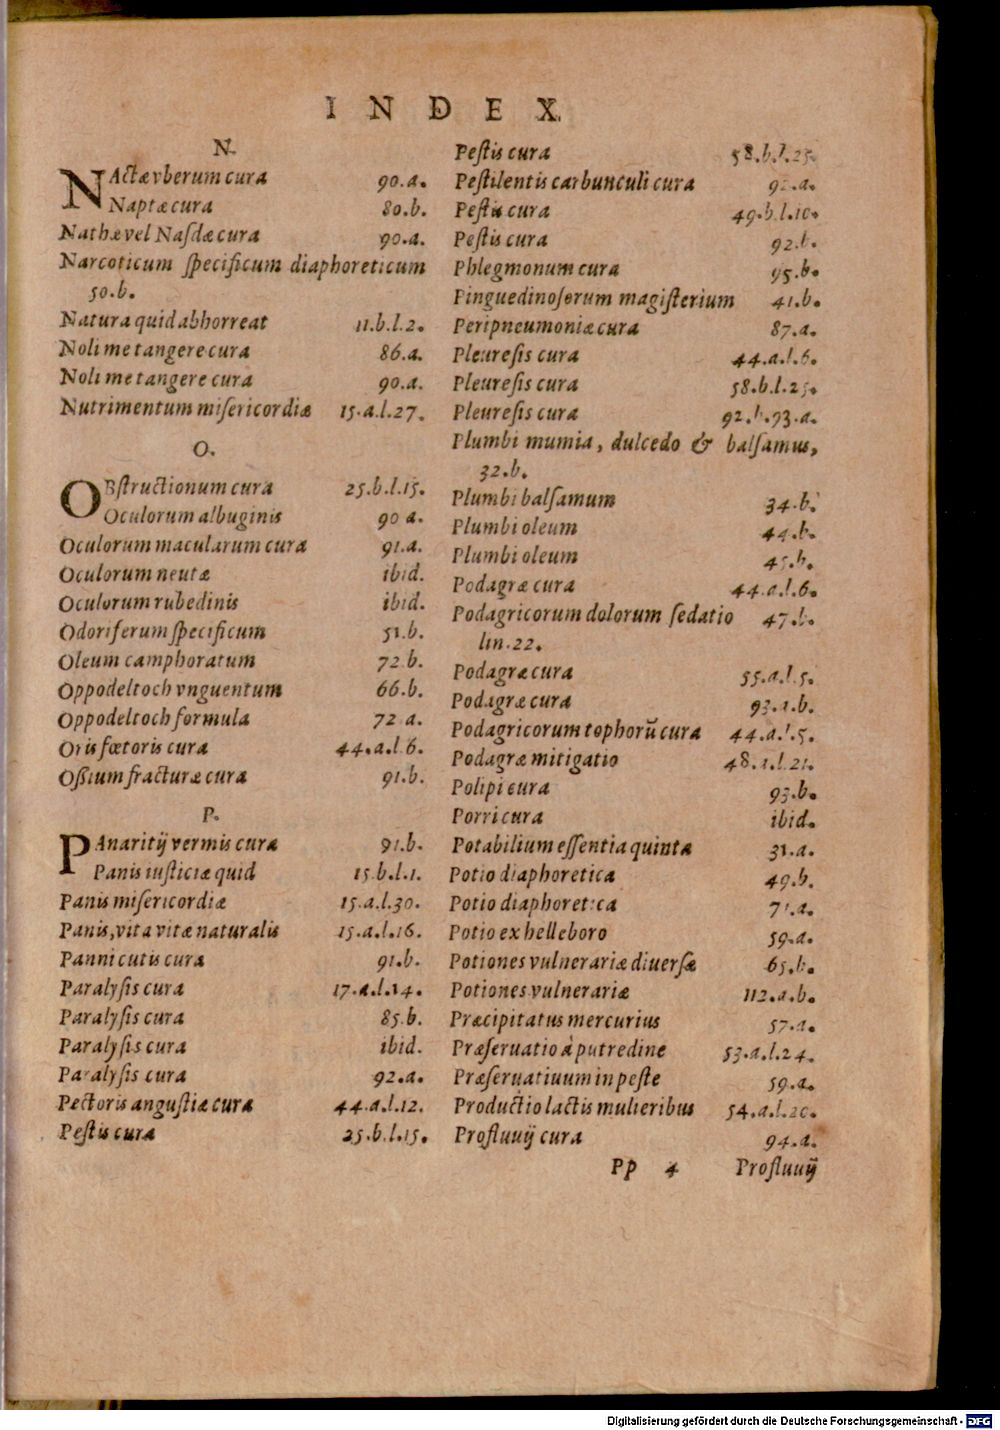 INDEX
N.
NActæ vberum cura 90.a.
Naptæ cura 80.b.
Nathæ vel Nasdæ cura 90.a.
Narcoticum specificum diaphoreticum
50.b.
Natura quid abhorreat 11.b.l.2.
Noli me tangere cura 86.a.
Noli me tangere cura 90.a.
Nutrimentum misericordiæ 15.a.l.27.
O.
OBstructionum cura 25.b.l.15.
Oculorum albuginis 90 a.
Oculorum macularum cura 91.a.
Oculorum neutæ ibid.
Oculorum rubedinis ibid.
Odoriferum specificum 51.b.
Oleum camphoratum 72.b.
Oppodeltoch vnguentum 66.b.
Oppodeltoch formula 72 a.
Oris fœtoris cura 44.a.l.6.
Ossium fracturæ cura 91.b.
P.
PAnaritij vermis cura 91.b.
Panis iusticiæ quid 15.b.l.1.
Panis misericordiæ 15.a.l.30.
Panis, vita vitæ naturalis 15.a.l.16.
Panni cutis cura 91.b.
Paralysis cura 17.a.l.14.
Paralysis cura 85.b.
Paralysis cura ibid.
Paralysis cura 92.a.
Pectoris angustiæ cura 44.a.l.12.
Pestis cura 25.b.l.15.
Pestis cura 58.b.l.25.
Pestilentis carbunculi cura 92.a.
Pestis cura 49.b.l.10.
Pestis cura 92.b.
Phlegmonum cura 95.b.
Pinguedinosorum magisterium 41.b.
Peripneumoniæ cura 87.a.
Pleuresis cura 44.a.l.6.
Pleuresis cura 58.b.l.25.
Pleuresis cura 92.b.93.a.
Plumbi mumia, dulcedo & balsamus,
32.b.
Plumbi balsamum 34.b.
Plumbi oleum 44.b.
Plumbi oleum 45.b.
Podagræ cura 44.a.l.6.
Podagricorum dolorum sedatio 47.b.
lin.22.
Podagræ cura 55.a.l.5.
Podagræ cura 93.a.b.
Podagricorum tophorũ cura 44.a.l.5.
Podagræ mitigatio 48.a.l.21.
Polipi cura 93.b.
Porri cura ibid.
Potabilium essentia quinta 31.a.
Potio diaphoretica 49.b.
Potio diaphoretica 71.a.
Potio ex helleboro 59.a.
Potiones vulnerariæ diuersæ 65.b.
Potiones vulnerariæ 112.a.b.
Præcipitatus mercurius 57.a.
Præseruatio à putredine 53.a.l.24.
Præseruatiuum in peste 59.a.
Productio lactis mulieribus 54.a.l.20.
Profluuij cura 94.a.
Pp 4 Profluuij
Digitalisierung gefördert durch die Deutsche Forschungsgemeinschaft - DFG